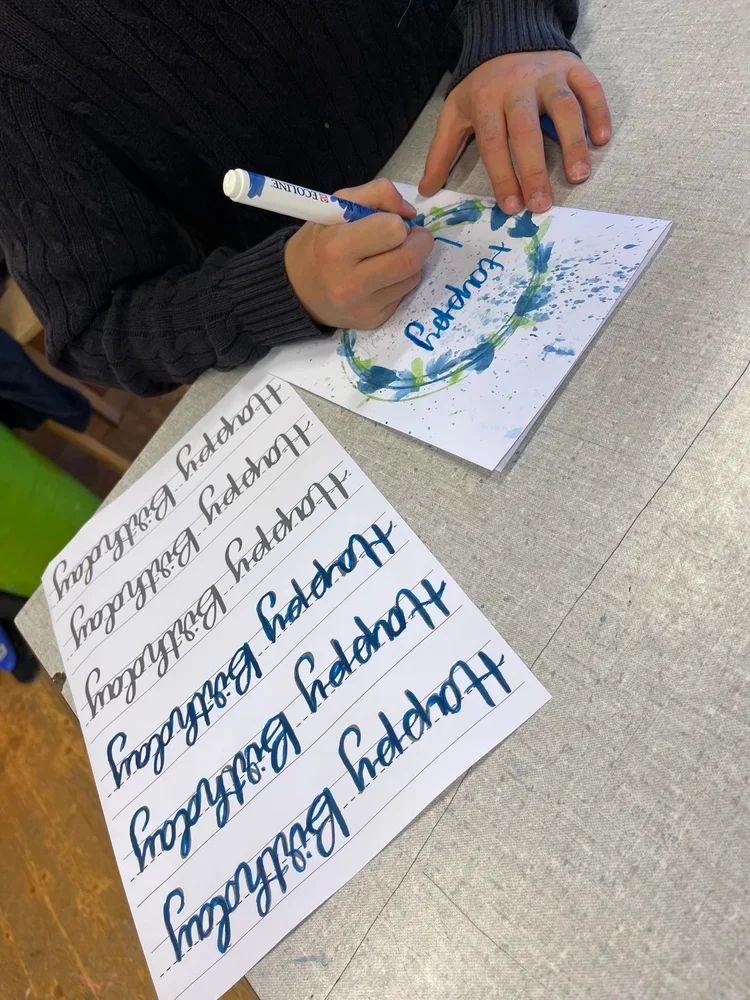 ECOLINE
Happy
Happy Birthday
Happy Birthday
Happy Birthday
Happy Birthday
Happy Birthday
Happy Birthday